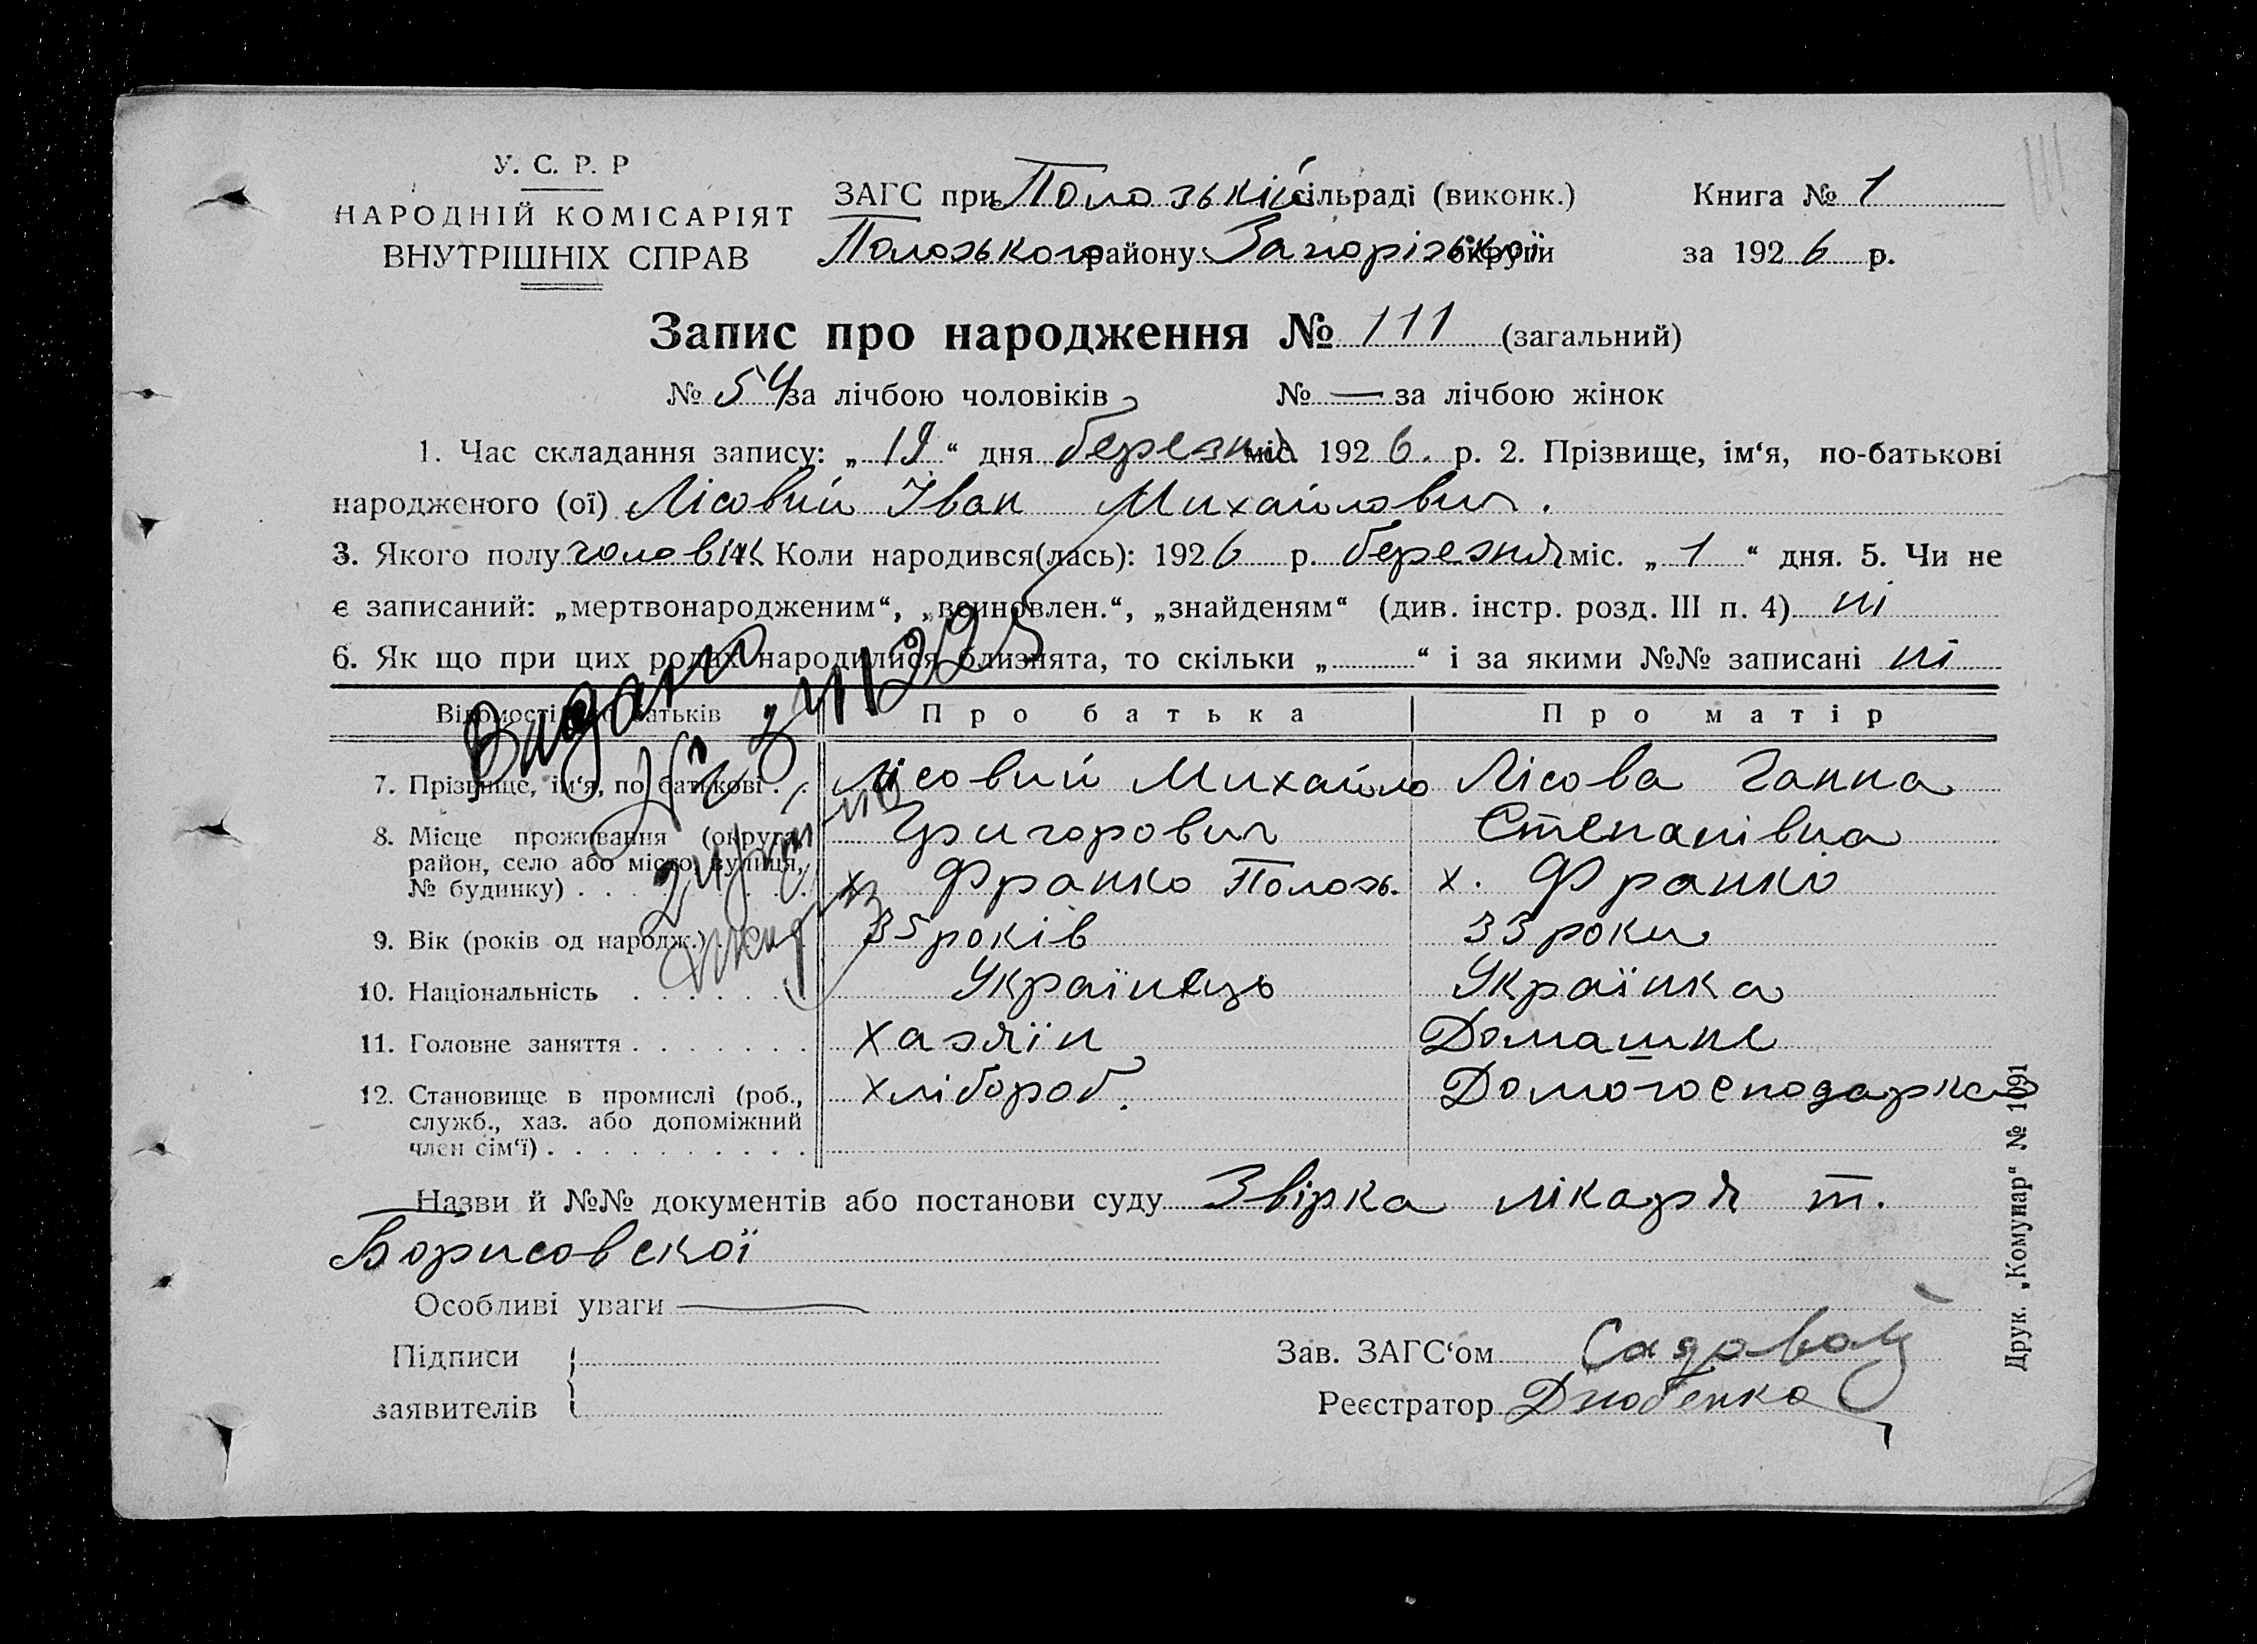 У. С. Р. Р
НАРОДНІЙ КОМІСАРІЯТ
ВНУТРІШНІХ СПРАВ
ЗАГС при Пологській сільраді (виконк.)
Книга № 1
Пологського району Запорізької округи
за 1926 р.
Запис про народження № 111 (загальний)
№ 54 за лічбою чоловіків № — за лічбою жінок
1. Час складання запису: „19“ дня березня міс. 1926. р. 2. Прізвище, ім‘я, по-батькові
народженого (ої) Лісовий Іван Михайлович.
3. Якого полу чоловік 4. Коли народився(лась): 1926 р. березня міс. „1“ дня. 5. Чи не
є записаний: „мертвонародженим“, „всиновлен.“, „знайденям“ (див. інстр. розд. III п. 4) ні
6. Як що при цих родах народилися близнята, то скільки „ “ і за якими №№ записані ні
Видано
Відомості про батьків
Про батька
Про матір
7. Прізвище, ім‘я, по батькові . .
Лісовий Михайло
Григорович
Лісова Ганна
Степанівна
8. Місце проживання (округа,
район, село або місто, вулиця,
№ будинку) . . .
х Франко Пологь.
х. Франко
9. Вік (років од народж.)
35 років
33 роки
10. Національність . . . . . .
Українець
Українка
11. Головне заняття . . . . . . .
Хазяїн
Домашнє
12. Становище в промислі (роб.,
служб., хаз. або допоміжний
член сім‘ї) . . . . . . . . . .
хлібороб.
Домогосподарка
Назви й №№ документів або постанови суду Звірка лікаря т.
Борисовської
Особливі уваги —
Підписи
заявителів
Зав. ЗАГС‘ом Садовой
Реєстратор Дзюбенко
Друк. „Комунар“ № 1091